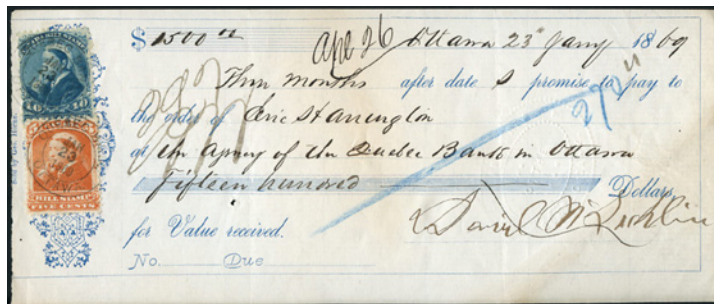 $ 1500 00 Apl 26 Ottawa 23d Jany 1869
Three months after date I promise to pay to
the order of Eric Harrington
at the Agency of the Quebec Bank in Ottawa
Fifteen hundred Dollars
for Value received.
David McLachlin
No. Due
BILL STAMP
10 10
BILL STAMP
FIVE CENTS